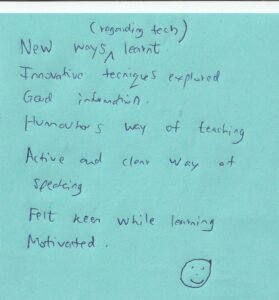 (regarding tech)
New ways ^ learnt
Innovative tecniques explored
Good information.
Humourous way of teaching
Active and clear way of
speaking
Felt keen while learning
Motivated.